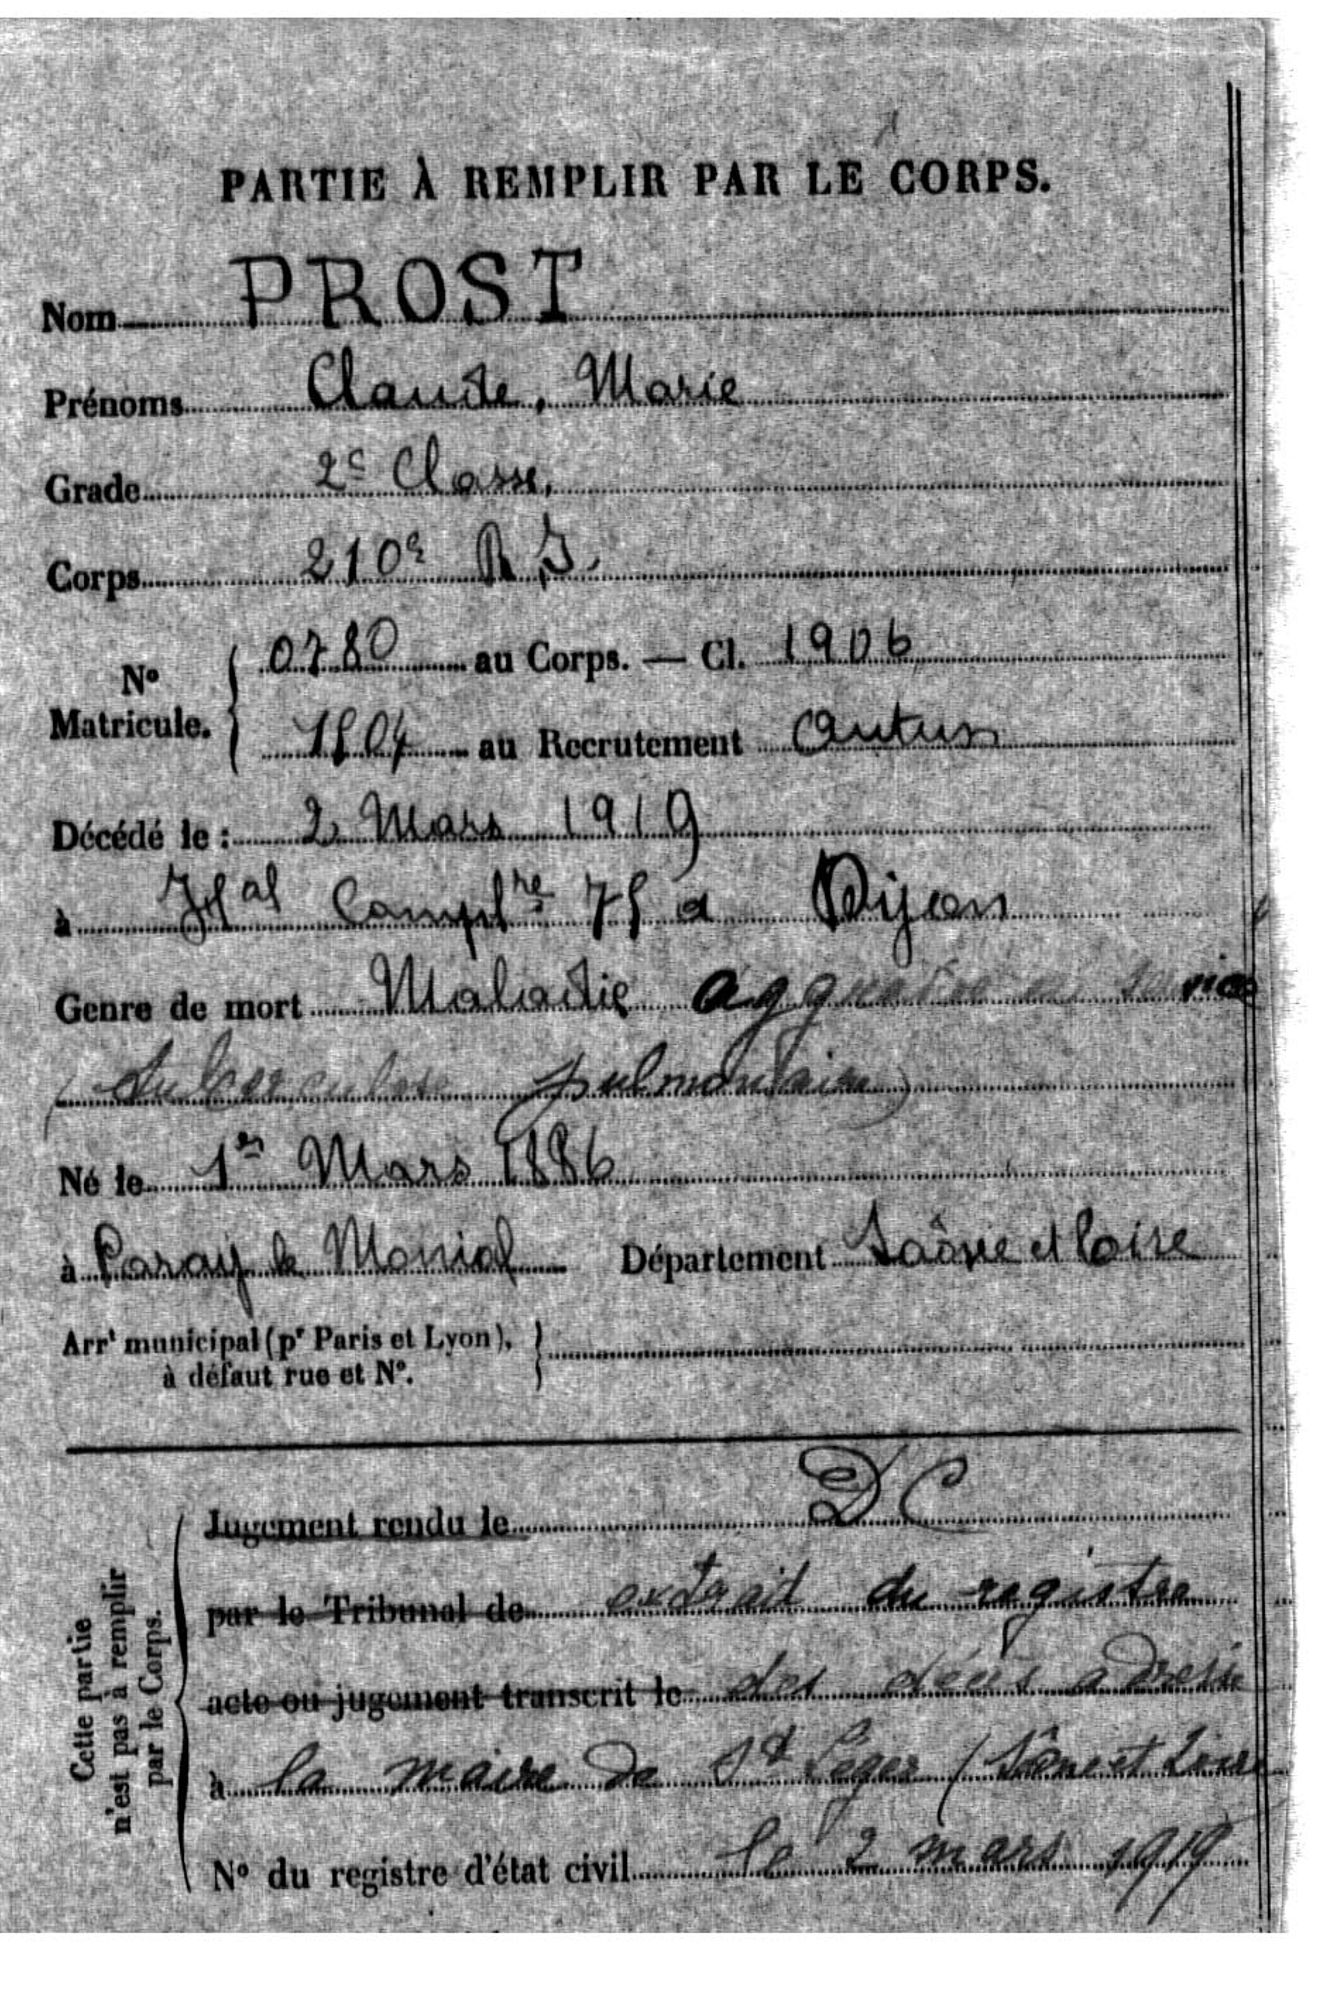 PARTIE À REMPLIR PAR LE CORPS.
Nom PROST
Prénoms Claude, Marie
Grade 2e Classe,
Corps 210e R I.
No Matricule. 0780 au Corps. — Cl. 1906
1504 au Recrutement Autun
Décédé le : 2 Mars 1919
à Hal Complre 75 a Dijon
Genre de mort Maladie aggravée en service
( tuberculose pulmonaire)
Né le 1er Mars 1886
à Paray le Monial Département Saône et Loire
Arrt municipal (pr Paris et Lyon), à défaut rue et No.
Cette partie n'est pas à remplir par le Corps.
Jugement rendu le DC
par le Tribunal de extrait du registre
acte ou jugement transcrit le des décès adressé
à la maire de St Léger (Saône et Loire
No du registre d'état civil le 2 mars 1919